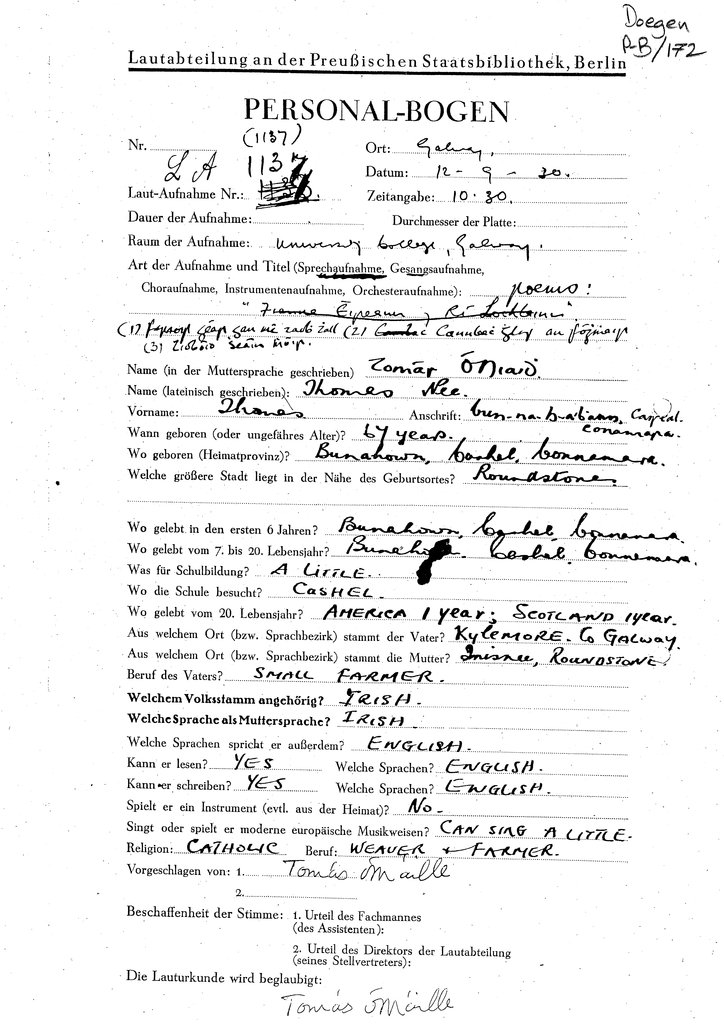 Doegen
Lautabteilung an der Preußischen Staatsbibliothek, Berlin
PERSONAL-BOGEN
Nr. (1137) Ort: Galway.
LA 1137 Datum: 12 - 9 - 30.
Laut-Aufnahme Nr.: Zeitangabe: 10.30.
Dauer der Aufnahme: Durchmesser der Platte:
Raum der Aufnahme: University College, Galway.
Art der Aufnahme und Titel (Sprechaufnahme, Gesangsaufnahme,
Choraufnahme, Instrumentenaufnahme, Orchesteraufnahme): poems:
(1) (2) an
(3)
Name (in der Muttersprache geschrieben) Tomás Ó Niadh.
Name (lateinisch geschrieben): Thomas Nee.
Vorname: Thomas Anschrift:
Wann geboren (oder ungefähres Alter)? 67 years.
Wo geboren (Heimatprovinz)? Bunahown, Cashel, Connemara.
Welche größere Stadt liegt in der Nähe des Geburtsortes? Roundstone.
Wo gelebt in den ersten 6 Jahren? Bunahown, Cashel, Connemara.
Wo gelebt vom 7. bis 20. Lebensjahr? Cashel, Connemara.
Was für Schulbildung? A LITTLE.
Wo die Schule besucht? CASHEL.
Wo gelebt vom 20. Lebensjahr? AMERICA 1 year; SCOTLAND 1 year.
Aus welchem Ort (bzw. Sprachbezirk) stammt der Vater? KYLEMORE. Co GALWAY.
Aus welchem Ort (bzw. Sprachbezirk) stammt die Mutter? Inisnee, ROUNDSTONE.
Beruf des Vaters? SMALL FARMER.
Welchem Volksstamm angehörig? IRISH.
Welche Sprache als Muttersprache? IRISH.
Welche Sprachen spricht er außerdem? ENGLISH.
Kann er lesen? YES Welche Sprachen? ENGLISH.
Kann er schreiben? YES Welche Sprachen? ENGLISH.
Spielt er ein Instrument (evtl. aus der Heimat)? No.
Singt oder spielt er moderne europäische Musikweisen? CAN SING A LITTLE.
Religion: CATHOLIC Beruf: WEAVER + FARMER.
Vorgeschlagen von: 1. Tomás Ó Máille
2.
Beschaffenheit der Stimme: 1. Urteil des Fachmannes
(des Assistenten):
2. Urteil des Direktors der Lautabteilung
(seines Stellvertreters):
Die Lauturkunde wird beglaubigt:
Tomás Ó Máille